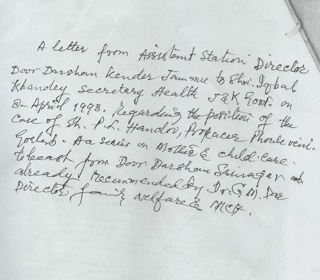 A letter from Assistant Station Director
Door Darsham Kender Jammu to Shri. Iqbal
Khandey Secretary Health J&K Govt. on
8- April 1993. Regarding the position of the
case of Sh. P.L. Handoo, Producer
series on Mother & child care.
Telecast from Door Darsham Srinagar
already Recommended by Dr. G.M. Dar
Director family welfare &